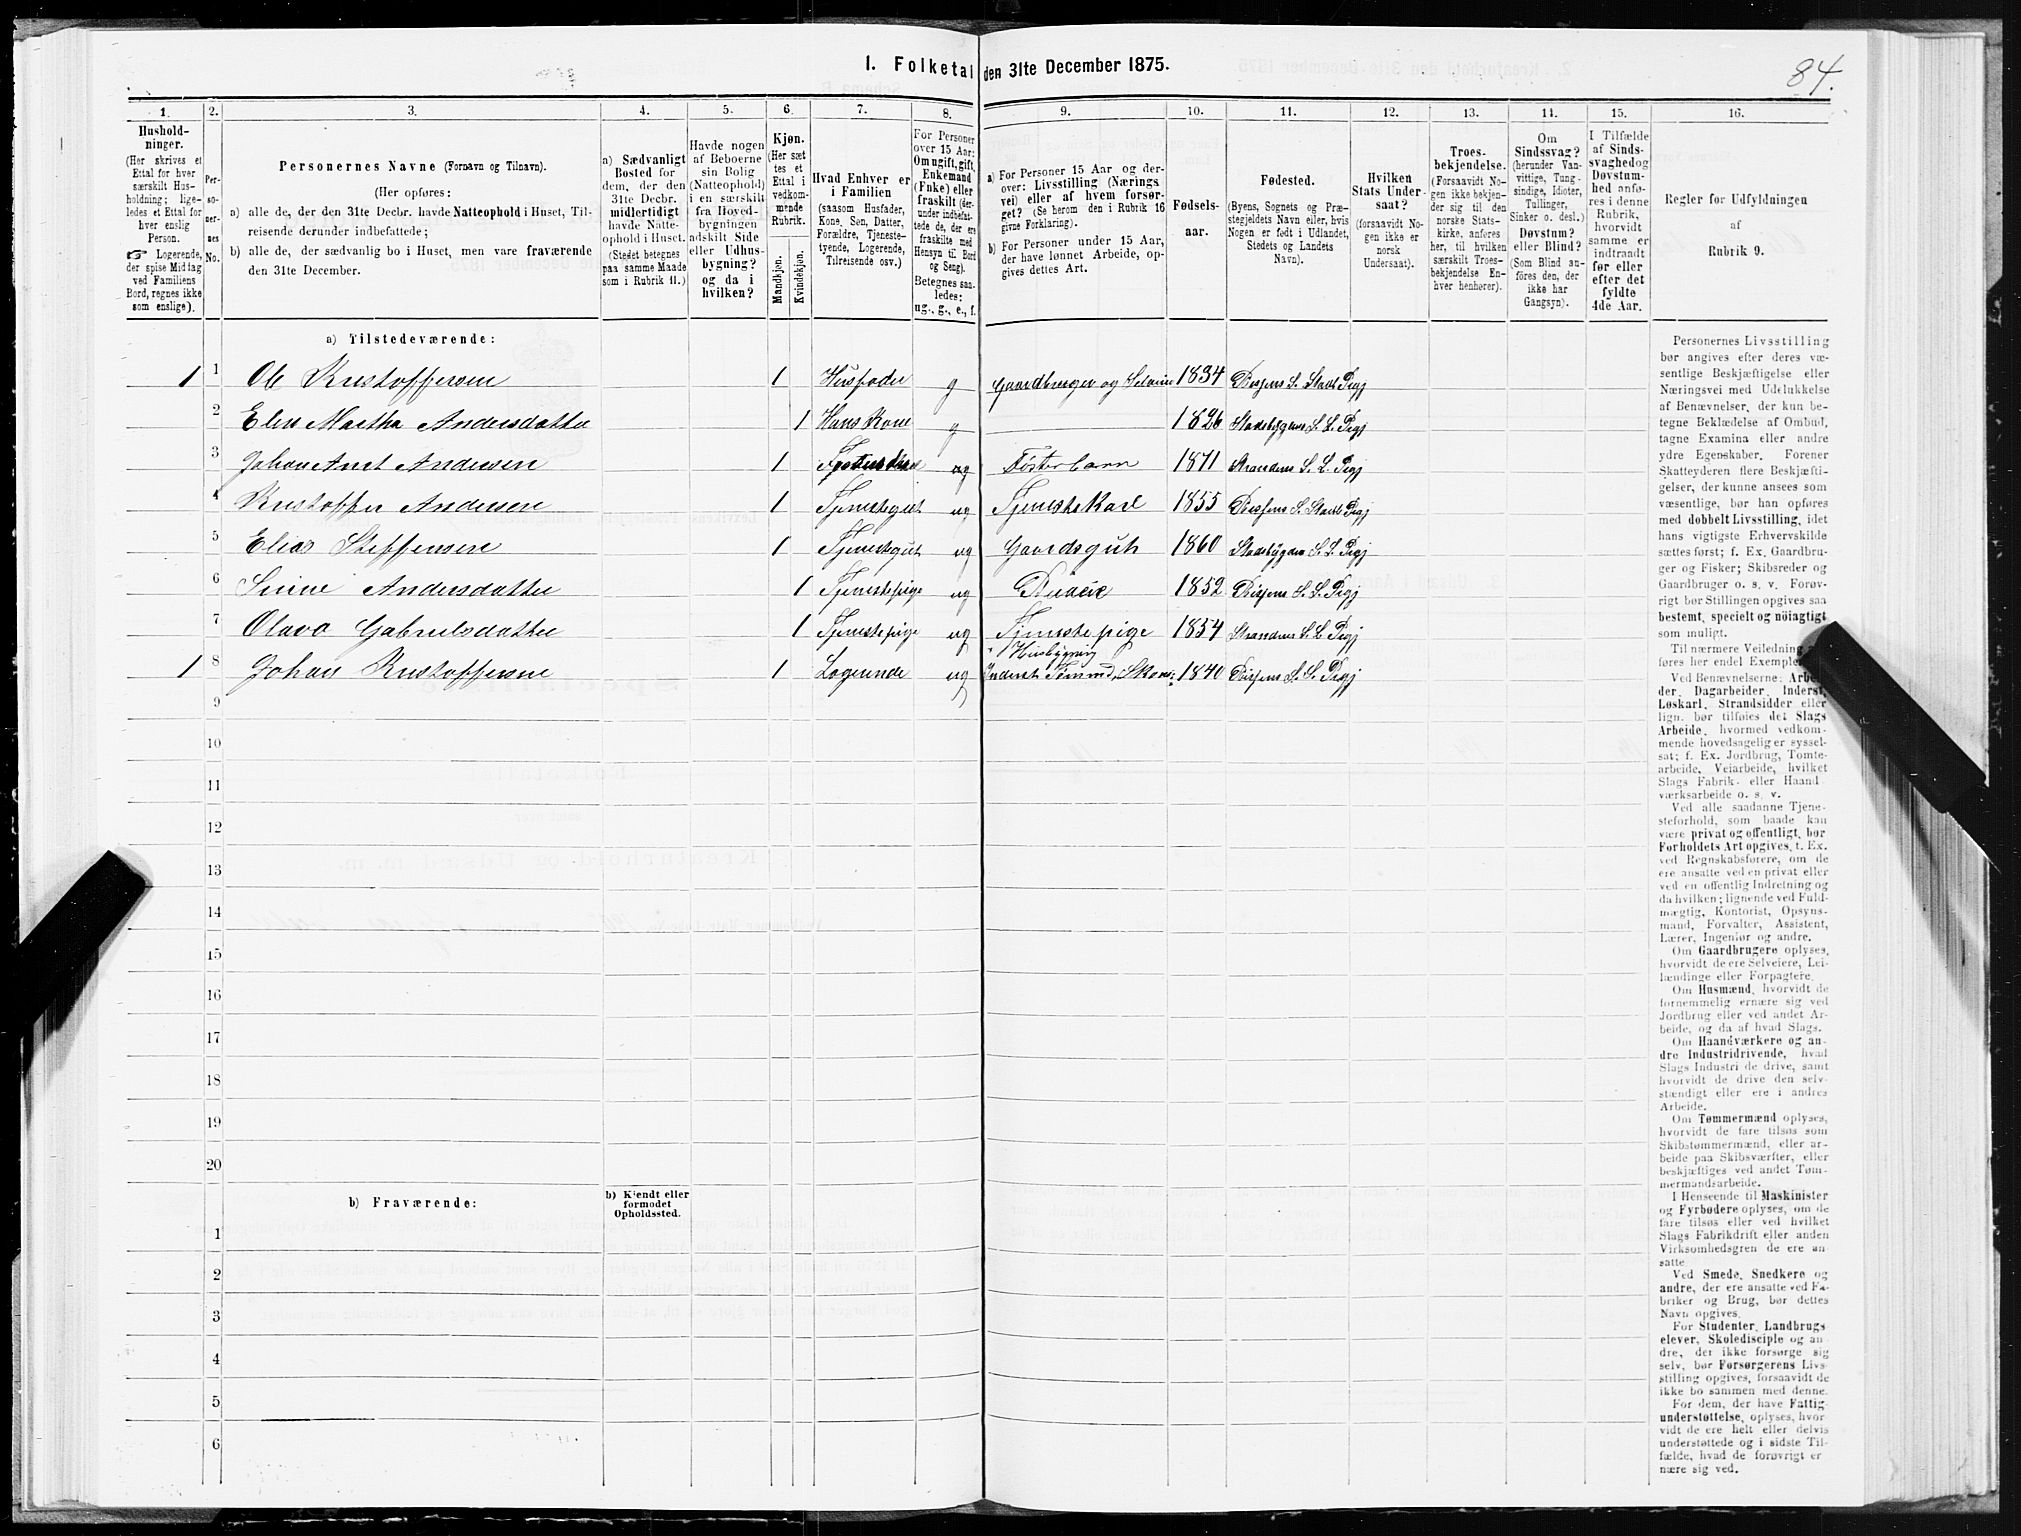 1. Folketal den 31te December 1875.
84.
1. 2. 3. 4. 5. 6. 7. 8. 9. 10. 11. 12. 13. 14. 15. 16.
Hushold-
ninger.
(Her skrives et
Ettal for hver
særskilt Hus-
holdning; lige-
ledes et Ettal for
hver enslig
Person.
☞ Logerende,
der spise Middag
ved Familiens
Bord, regnes ikke
som enslige).
Per-
soner-
nes
No.
Personernes Navne (Fornavn og Tilnavn).
(Her opføres:
a) alle de, der den 31te Decbr. havde Natteophold i Huset, Til-
reisende derunder indbefattede;
b) alle de, der sædvanlig bo i Huset, men vare fraværende
den 31te December.
a) Sædvanligt
Bosted for
dem, der den
31te Decbr.
midlertidigt
havde Natte-
ophold i Huset.
(Stedet betegnes
paa samme Maade
som i Rubrik 11.)
Havde nogen
af Beboerne
sin Bolig
(Natteophold)
i en særskilt
fra Hoved-
bygningen
adskilt Side
eller Udhus-
bygning?
og da i
hvilken?
Kjøn.
(Her sæt
tes et
Ettal i
vedkom-
mende
Rubrik.
Mandkjøn.
Kvindekjøn.
Hvad Enhver er
i Familien
(saasom Husfader,
Kone, Søn, Datter,
Forældre, Tjeneste-
tyende, Logerende,
Tilreisende osv.)
For Personer
over 15 Aar:
Om ugift, gift,
Enkemand
(Enke) eller
fraskilt (der-
under indbefat-
tede de, der ere
fraskilte med
Hensyn til Bord
og Seng).
Betegnes saa-
ledes:
ug., g., e., f.
a) For Personer 15 Aar og der-
over: Livsstilling (Nærings
vei) eller af hvem forsør-
get? (Se herom den i Rubrik 16
givne Forklaring).
b) For Personer under 15 Aar,
der have lønnet Arbeide, op-
gives dettes Art.
Fødsels-
aar.
Fødested.
(Byens, Sognets og Præ-
stegjeldets Navn eller, hvis
Nogen er født i Udlandet,
Stedets og Landets
Navn).
Hvilken
Stats Under-
saat?
(forsaavidt No-
gen ikke er
norsk
Undersaat).
Troes-
bekjendelse.
(Forsaavidt No-
gen ikke bekjen-
der sig til den
norske Stats-
kirke, anføres
her, til hvilken
særskilt Troes-
bekjendelse En-
hver henhører).
Om
Sindssvag?
(herunder Van-
vittige, Tung-
sindige, Idioter,
Tullinger,
Sinker o. desl.)
Døvstum?
eller Blind?
(Som Blind an-
føres den, der
ikke har
Gangsyn).
I Tilfælde
af Sinds-
svaghed og
Døvstum-
hed anfø-
res i denne
Rubrik,
hvorvidt
samme er
indtraadt
før eller
efter det
fyldte
4de Aar.
Regler for Udfyldningen
af
Rubrik 9.
a) Tilstedeværende:
1 1 Ole Kristoffersen 1 Husfader g Gaardbruger og Selveier 1834
2 Elen Martha Andersdatter 1 Hans Kone g 1826 Stadsbygdens S. S. Pegj
3 Johan Arnt Andersen 1 ug Fosterbarn 1871 Strandens S. S. Pegj
4 Kristoffer Andersen 1 Tjenestegut ug Tjenestekarl 1855
5 Elias Steffensen 1 Tjenestgut ug Gaardsgut 1860 Stadsbygden S. S. Pegj
6 Sirine Andersdatter 1 Tjenestepige ug Budeie 1852
7 Olava Gabrielsdatter 1 Tjenestepige ug Tjenestepige 1854 Strandens S. S. Pegj
1 8 Johan Kristoffersen 1 Logerende ug Inderst Tømmer 1840
Husbygning
9
10
11
12
13
14
15
16
17
18
19
20
b) Fraværende:
b) Kjendt eller
formodet
Opholdssted.
1
2
3
4
5
6
Personernes Livsstilling
bør angives efter deres væ-
sentlige Beskjæftigelse eller
Næringsvei med Udelukkelse
af Benævnelser, der kun be-
tegne Beklædelse af Ombud,
tagne Examina eller andre
ydre Egenskaber. Forener
Skatteyderen flere Beskjæfti-
gelser, der kunne ansees som
væsentlige, bør han opføres
med dobbelt Livsstilling, idet
hans vigtigste Erhvervskilde
sættes først; f. Ex. Gaardbru-
ger og Fisker; Skibsreder og
Gaardbruger o. s. v. Forøv-
rigt bør Stillingen opgives saa
bestemt, specielt og nöiagtigt
som muligt.
Til nærmere Veiledning
føres her endel Exempler
Ved Benævnelserne: Arbei-
der, Dagarbeider, Inderst,
Løskarl, Strandsidder eller
lign. bør tilføies det Slags
Arbeide, hvormed vedkom-
mende hovedsagelig er syssel-
sat; f. Ex. Jordbrug, Tomte-
arbeide, Veiarbeide, hvilket
Slags Fabrik- eller Haand
værksarbeide o. s. v.
Ved alle saadanne Tjene-
steforhold, som baade kan
være privat og offentligt, bør
Forholdets Art opgives, t. Ex.
ved Regnskabsførere, om de
ere ansatte ved en privat eller
ved en offentlig Indretning og
da hvilken; lignende ved Fuld-
mægtig, Kontorist, Opsyns-
mand, Forvalter, Assistent,
Lærer, Ingeniør og andre.
Om Gaardbrugere oplyses,
hvorvidt de ere Selveiere, Lei-
lændinge eller Forpagtere.
Om Husmænd, hvorvidt de
fornemmelig ernære sig ved
Jordbrug eller ved andet Ar-
beide, og da af hvad Slags.
Om Haandværkere og an-
dre Industridrivende, hvad
Slags Industri de drive, samt
hvorvidt de drive den selv-
stændigt eller ere i andres
Arbeide.
Om Tømmermænd oplyses,
hvorvidt de fare tilsøs som
Skibstømmermænd, eller ar-
beide paa Skibsværfter, eller
beskjæftiges ved andet Tøm-
mermandsarbeide.
I Henseende til Maskinister
og Fyrbødere oplyses, om de
fare tilsøs eller ved hvilket
Slags Fabrikdrift eller anden
Virksomhedsgren de ere an-
satte
Ved Smede, Snedkere og
andre, der ere ansatte ved Fa-
briker og Brug, bør dettes
Navn opgives.
For Studenter, Landbrugs
elever, Skoledisciple og an-
dre, der ikke forsørge sig
selv, bør Forsørgerens Livs-
stilling opgives, forsaavidt de
ikke bo sammen med denne.
For dem, der have Fattig-
understøttelse, oplyses, hvor-
vidt de ere helt eller delvis
understøttede og i sidste Til-
fælde, hvad de forøvrigt er
nære sig ved.